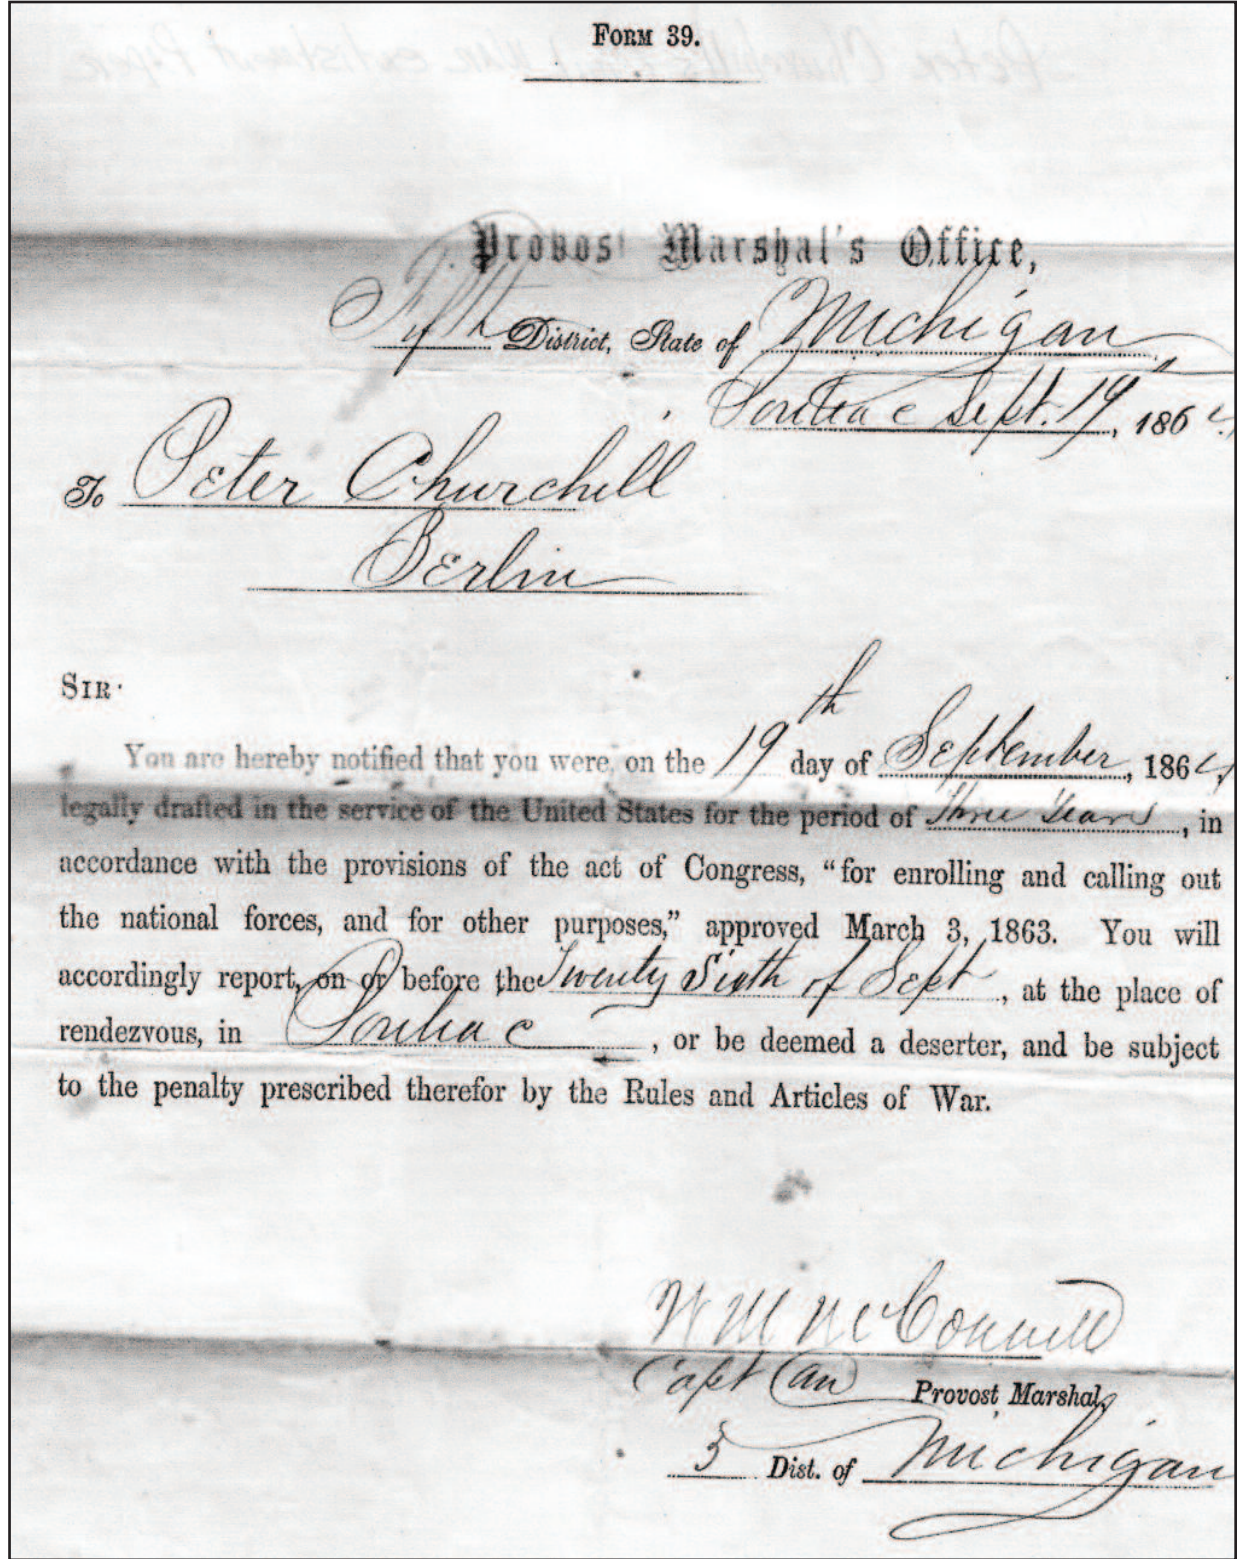 FORM 39.
Provost Marshal's Office,
Fifth District, State of Michigan,
Pontiac Sept. 19, 1864,
To Peter Churchill
Berlin
SIR
You are hereby notified that you were, on the 19th day of September, 1864,
legally drafted in the service of the United States for the period of Three Years, in
accordance with the provisions of the act of Congress, "for enrolling and calling out
the national forces, and for other purposes," approved March 3, 1863. You will
accordingly report, on or before the Twenty Sixth of Sept, at the place of
rendezvous, in Pontiac, or be deemed a deserter, and be subject
to the penalty prescribed therefor by the Rules and Articles of War.
Wm McConnell
Capt and Provost Marshal,
5 Dist. of Michigan